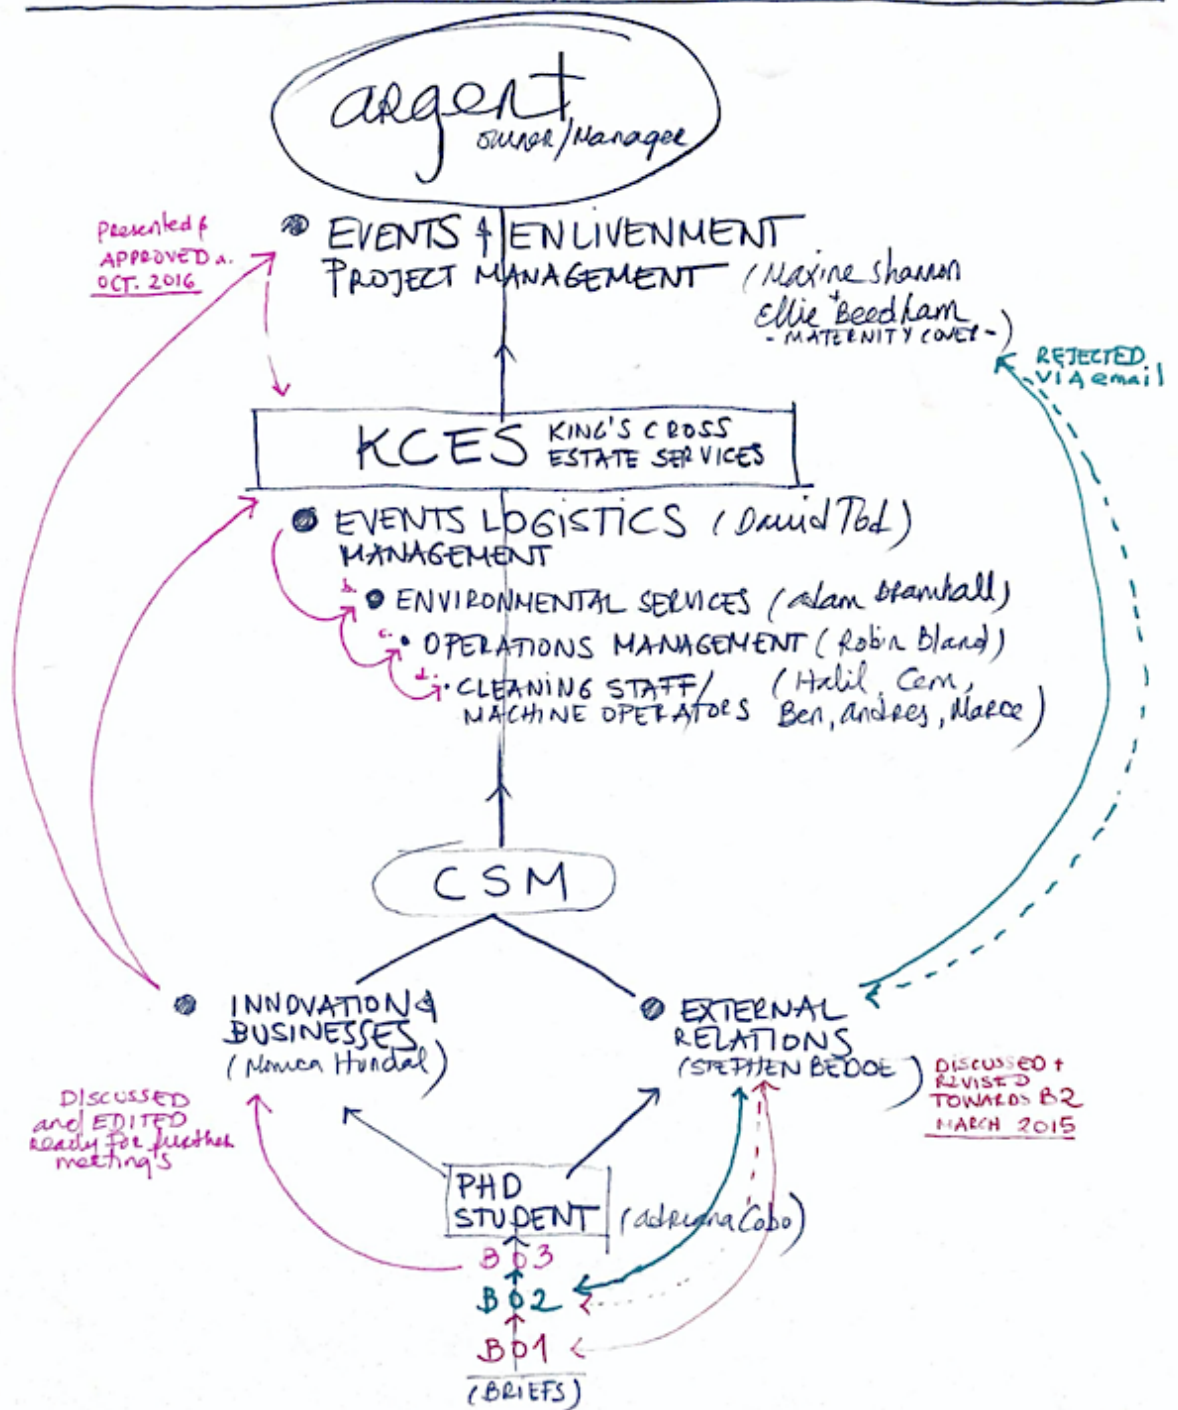 argent
owner/Manager
Presented &
APPROVED a.
OCT. 2016
EVENTS & ENLIVENMENT
PROJECT MANAGEMENT (Maxine Shannon
+
Ellie Beedham
- MATERNITY COVER -)
REJECTED
VIA email
KCES KING'S CROSS
ESTATE SERVICES
EVENTS LOGISTICS (David Tod)
MANAGEMENT
b. ENVIRONMENTAL SERVICES (adam Bramhall)
c. OPERATIONS MANAGEMENT (Robin Bland)
d. CLEANING STAFF/ (Halil, Cem,
MACHINE OPERATORS Ben, andres, Marce)
CSM
INNOVATION &
BUSINESSES
(Monica Hundal)
EXTERNAL
RELATIONS
(STEPHEN BEDOE)
DISCUSSED +
REVISED
TOWARDS B2
MARCH 2015
DISCUSSED
and EDITED
Ready for further
meeting's
PHD
STUDENT (adriana Cobo)
B03
B02
B01
(BRIEFS)